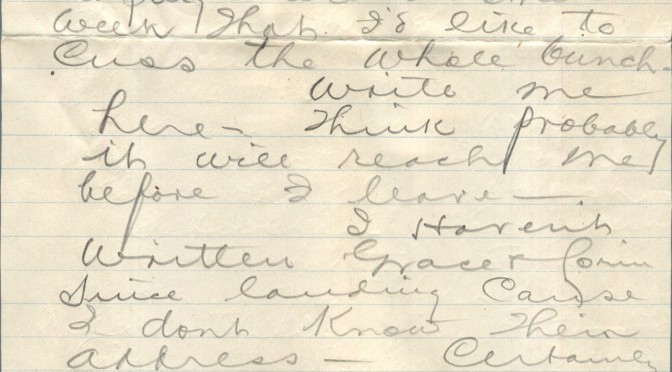 week that I'd like to
Cuss the whole bunch-
Write me
here- Think probably
it will reach me
before I leave-
I Haven't
Written Grace &
Since landing Cause
I dont Know Their
address - Certainly